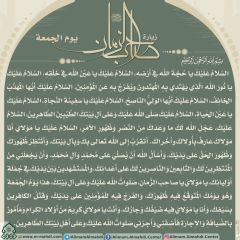 زيارة
صاحب الزمان
يوم الجمعة
بسم الله الرحمن الرحيم
السلام عليك يا حجة الله في أرضه، السلام عليك يا عين الله في خلقه، السلام عليك
يا نور الله الذي يهتدي به المهتدون ويفرج به عن المؤمنين، السلام عليك أيها المهذب
الخائف، السلام عليك أيها الولي الناصح، السلام عليك يا سفينة النجاة، السلام عليك يا
عين الحياة، السلام عليك صلى الله عليك وعلى آل بيتك الطيبين الطاهرين، السلام
عليك، عجل الله لك ما وعدك من النصر وظهور الأمر، السلام عليك يا مولاي أنا
مولاك عارف بأولاك وأخراك، أتقرب إلى الله تعالى بك وبآل بيتك، وأنتظر ظهورك
وظهور الحق على يديك، وأسأل الله أن يصلي على محمد وآل محمد، وأن يجعلني من
المنتظرين لك والتابعين والناصرين لك على أعدائك والمستشهدين بين يديك في جملة
أوليائك، يا مولاي يا صاحب الزمان، صلوات الله عليك وعلى آل بيتك، هذا يوم الجمعة
وهو يومك المتوقع فيه ظهورك، والفرج فيه للمؤمنين على يديك، وقتل الكافرين
بسيفك، وأنا يا مولاي فيه ضيفك وجارك، وأنت يا مولاي كريم من أولاد الكرام ومأمور
بالضيافة والإجارة فأضفني وأجرني صلوات الله عليك وعلى أهل بيتك الطاهرين.